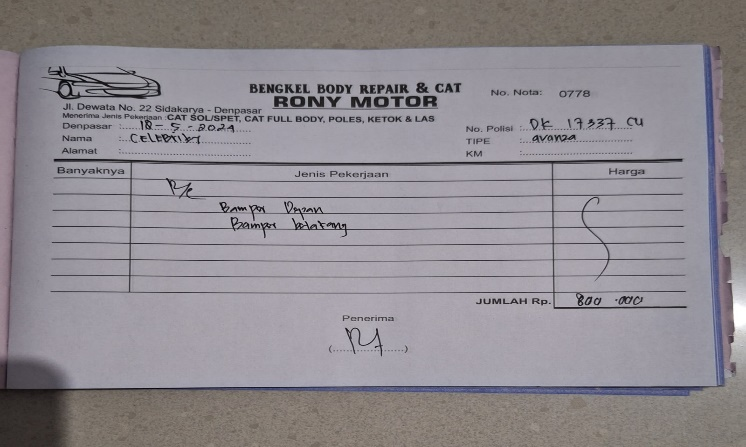 BENGKEL BODY REPAIR & CAT
RONY MOTOR
No. Nota: 0778
Jl. Dewata No. 22 Sidakarya - Denpasar
Menerima Jenis Pekerjaan : CAT SOL/SPET, CAT FULL BODY, POLES, KETOK & LAS
Denpasar : 18 - 5 - 2024
No. Polisi : DK 17337 CU
Nama :
TIPE : avanza
Alamat :
KM :
Banyaknya Jenis Pekerjaan Harga
Bamper Depan
Bamper belakang
JUMLAH Rp. 800.000
Penerima
(..............)